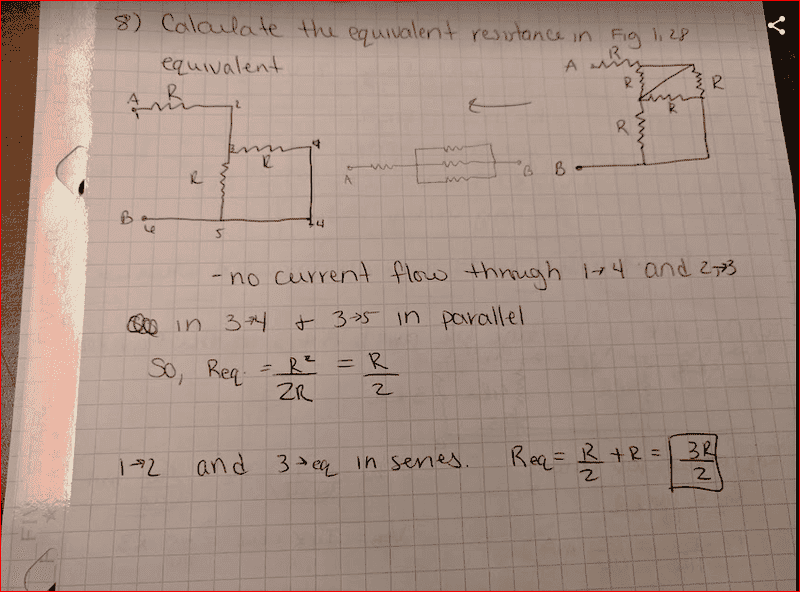 8) Calculate the equivalent resistance in Fig 1.28
equivalent
A R 2
1
2 R 4
R
B 6 5 4
A B
A R
R R
R
R
B
- no current flow through 1→4 and 2→3
in 3→4 + 3→5 in parallel
So, Req = R² / 2R = R / 2
1→2 and 3→eq in series. Req = R / 2 + R = 3R / 2
FIV